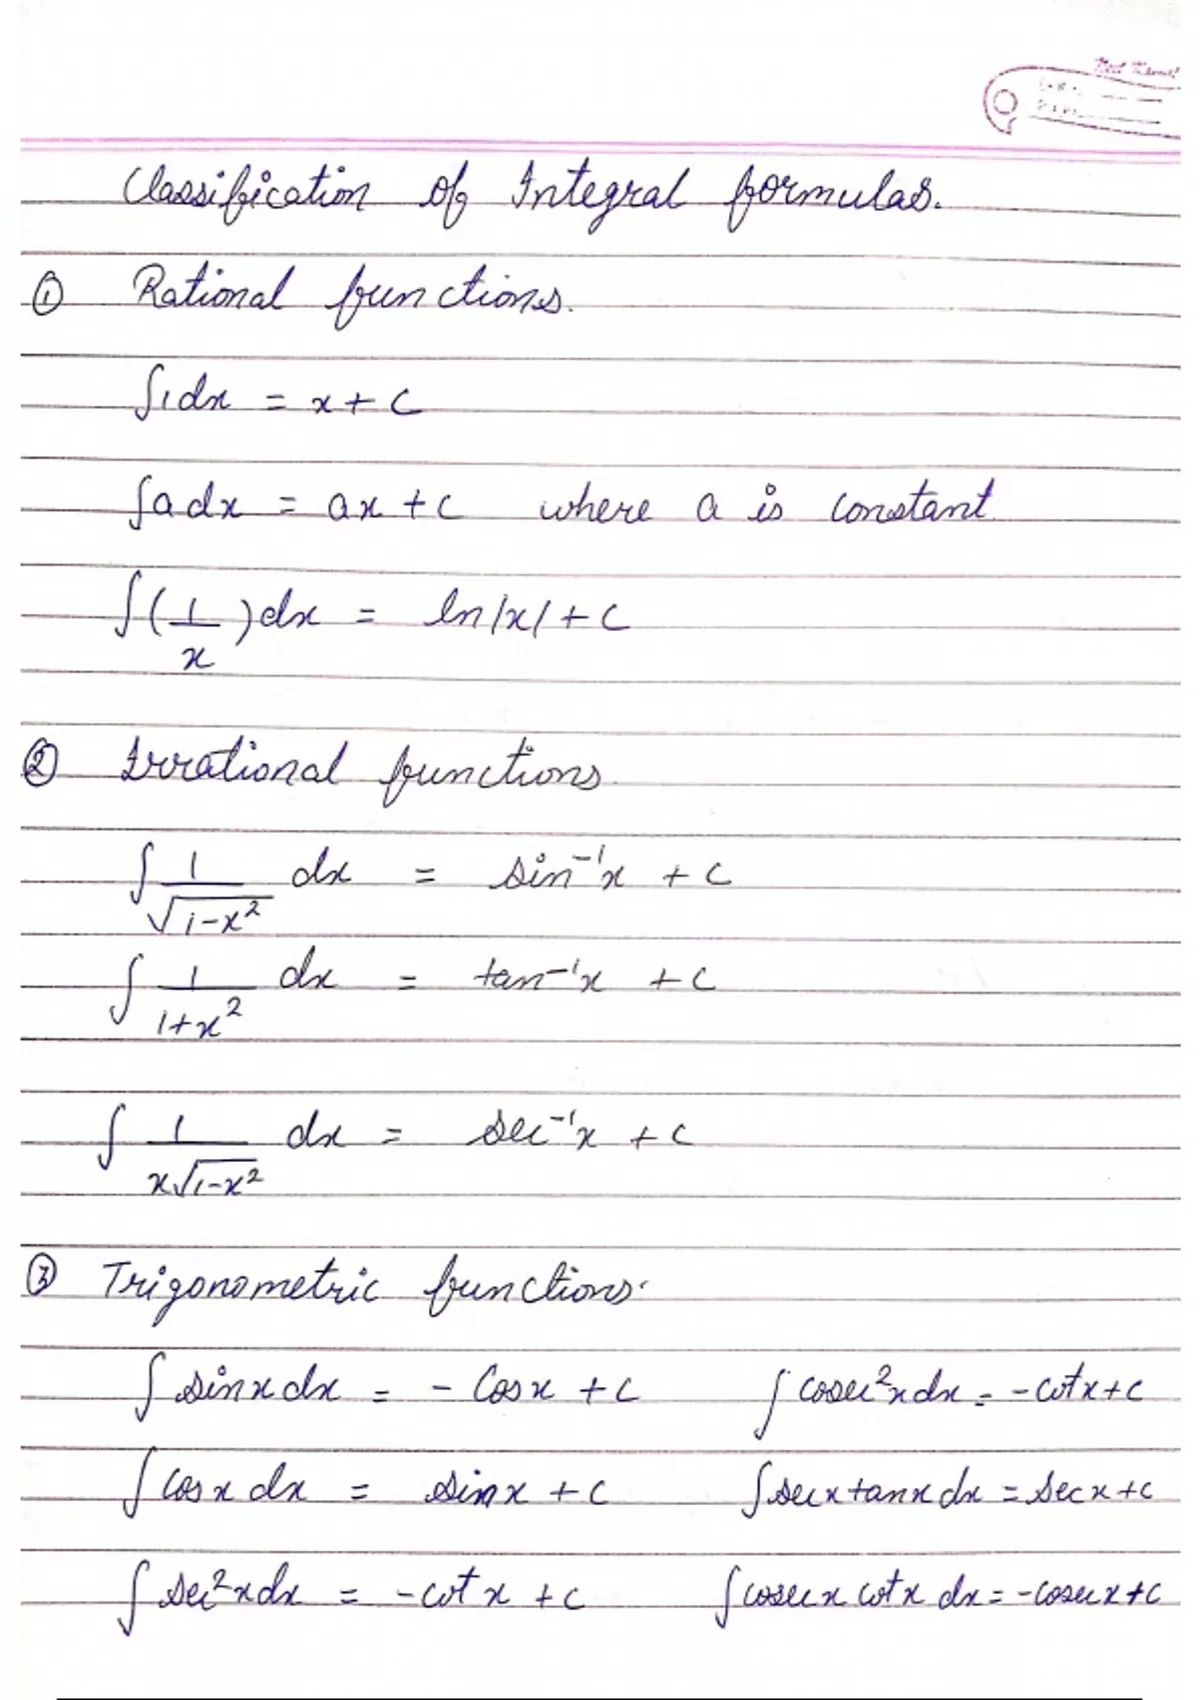 Classification of Integral formulas.
① Rational functions.
∫1dx = x + c
∫a dx = ax + c where a is constant
∫(1/x)dx = ln|x| + c
② Irrational functions.
∫ 1/√(1-x²) dx = sin⁻¹x + c
∫ 1/(1+x²) dx = tan⁻¹x + c
∫ 1/(x√(1-x²)) dx = sec⁻¹x + c
③ Trigonometric functions.
∫ sinx dx = - Cosx + c ∫ cosec²x dx = -cotx + c
∫ cosx dx = sinx + c ∫ secx tanx dx = secx + c
∫ sec²x dx = -cotx + c ∫ cosecx cotx dx = -cosecx + c